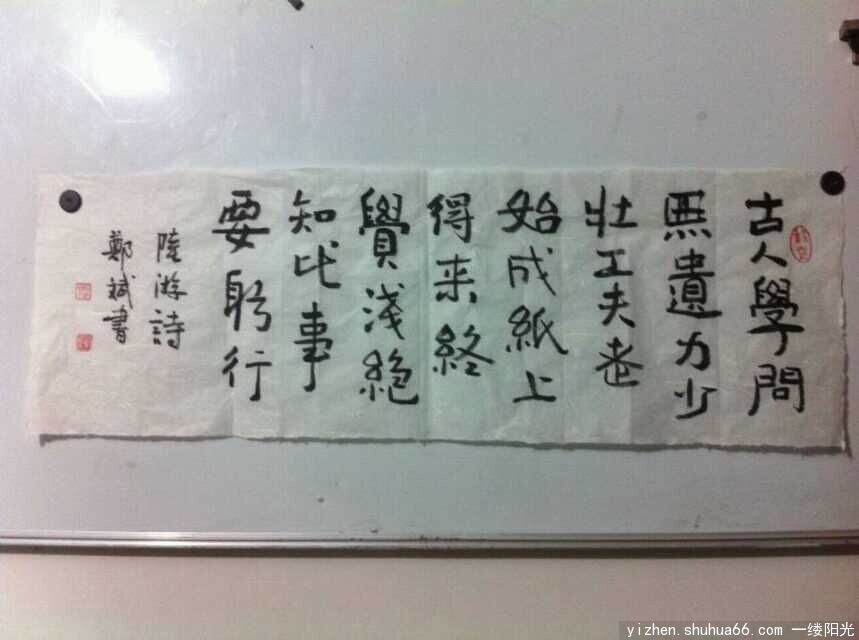 古人學問
無遺力少
壯工夫老
始成紙上
得来終
覺淺絶
知此事
要躬行
陸游詩
鄭斌書
yizhen.shuhua66.com 一缕阳光